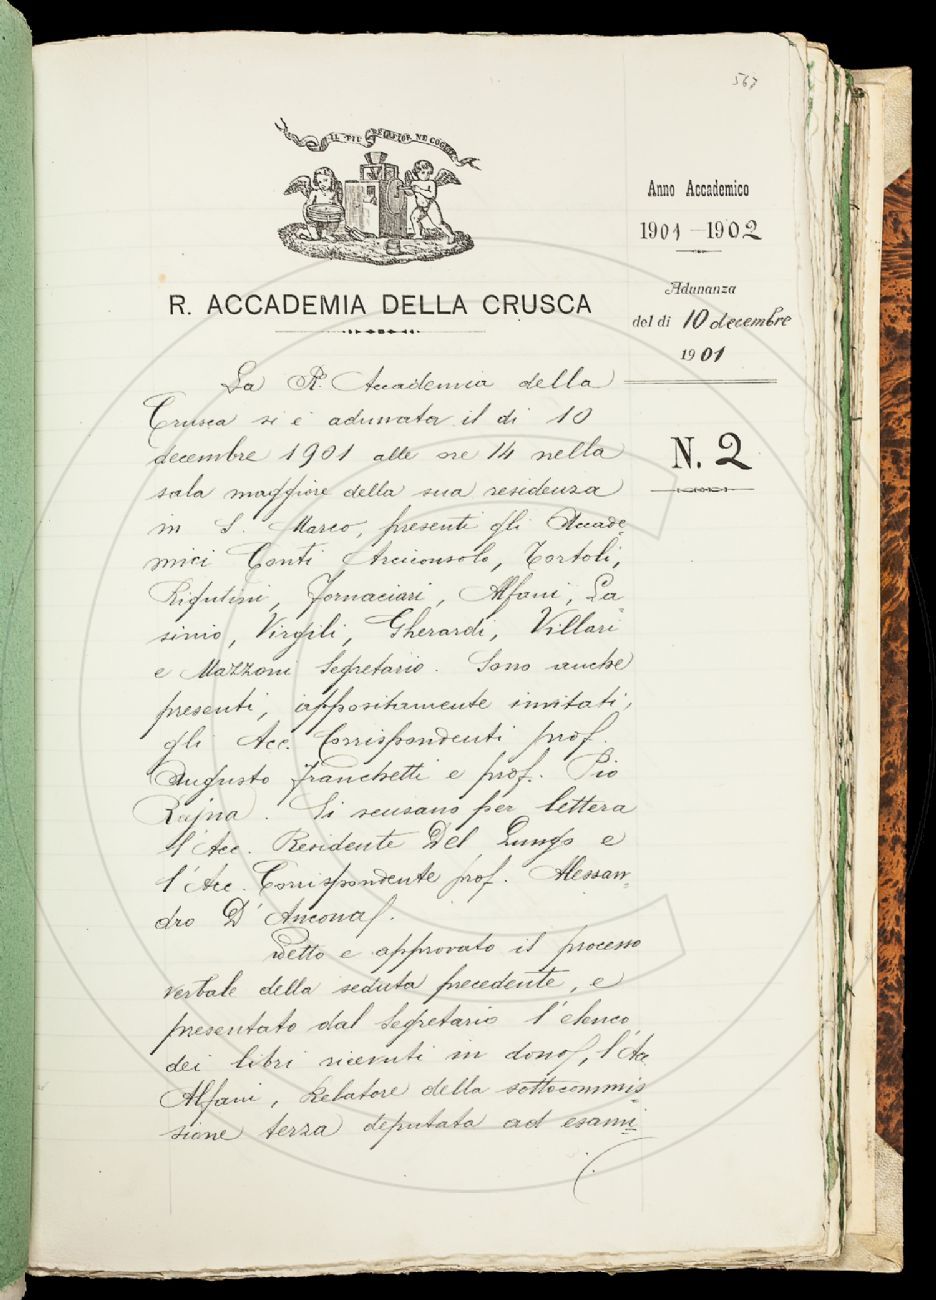 567
IL PIÙ BEL FIOR NE COGLIE
Anno Accademico
1901-1902
Adunanza
del dì 10 decembre
1901
N. 2
R. ACCADEMIA DELLA CRUSCA
La R. Accademia della
Crusca si è adunata il dì 10
decembre 1901 alle ore 14 nella
sala maggiore della sua residenza
in S. Marco, presenti gli Accade-
mici Conti Arciconsolo, Tortoli,
Rigutini, Fornaciari, Alfani, La-
sinio, Virgili, Gherardi, Villari
e Mazzoni Segretario. Sono anche
presenti, appositamente invitati,
gli Acc. Corrispondenti prof.
Augusto Franchetti e prof. Pio
Rajna. Si scusano per lettera
l'Acc. Residente Del Lungo e
l'Acc. Corrispondente prof. Alessan-
dro D'Ancona.
Letto e approvato il processo
verbale della seduta precedente, e
presentato dal Segretario l'elenco
dei libri ricevuti in dono, l'Acc.
Alfani, Relatore della sottocommis-
sione terza deputata ad esami-